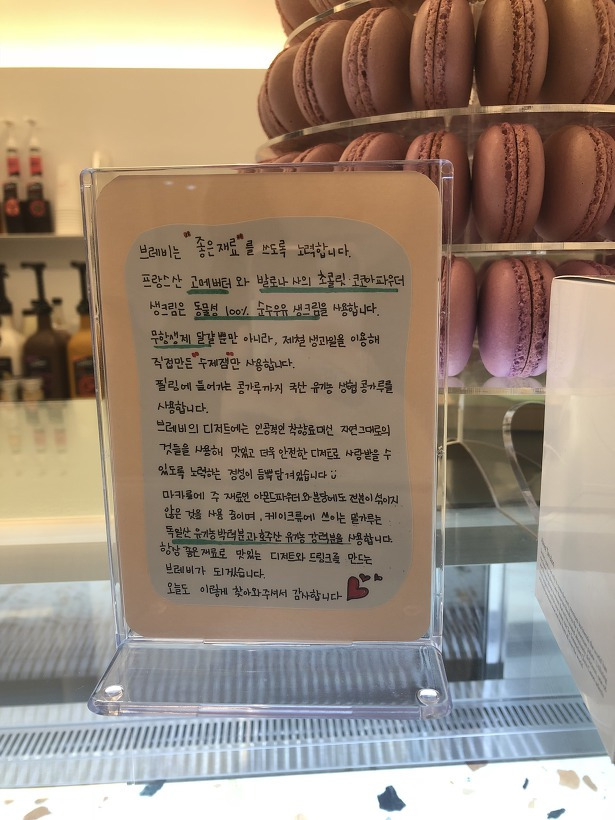 브레비는 "좋은재료"를 쓰도록 노력합니다.
프랑스산 고메버터 와 발로나 사의 초콜릿·코코아파우더
생크림은 동물성 100% 순수우유 생크림을 사용합니다.
무항생제 달걀 뿐만 아니라, 제철 생과일을 이용해
직접만든 "수제잼"만 사용합니다.
필링에 들어가는 콩가루까지 국산 유기농 생협 콩가루를
사용합니다.
브레비의 디저트에는 인공적인 착향료대신 자연그대로의
것들을 사용해 맛있고 더욱 안전한 디저트로 사랑받을 수
있도록 노력하는 정성이 듬뿍 담겨있습니다
마카롱에 주 재료인 아몬드파우더와 분당에도 전분이 섞이지
않은 것을 사용 중이며, 케이크류에 쓰이는 밀가루는
독일산 유기농 박력분과 호주산 유기농 강력분을 사용합니다.
항상 좋은 재료로 맛있는 디저트와 드링크를 만드는
브레비가 되겠습니다.
오늘도 이렇게 찾아와주셔서 감사합니다